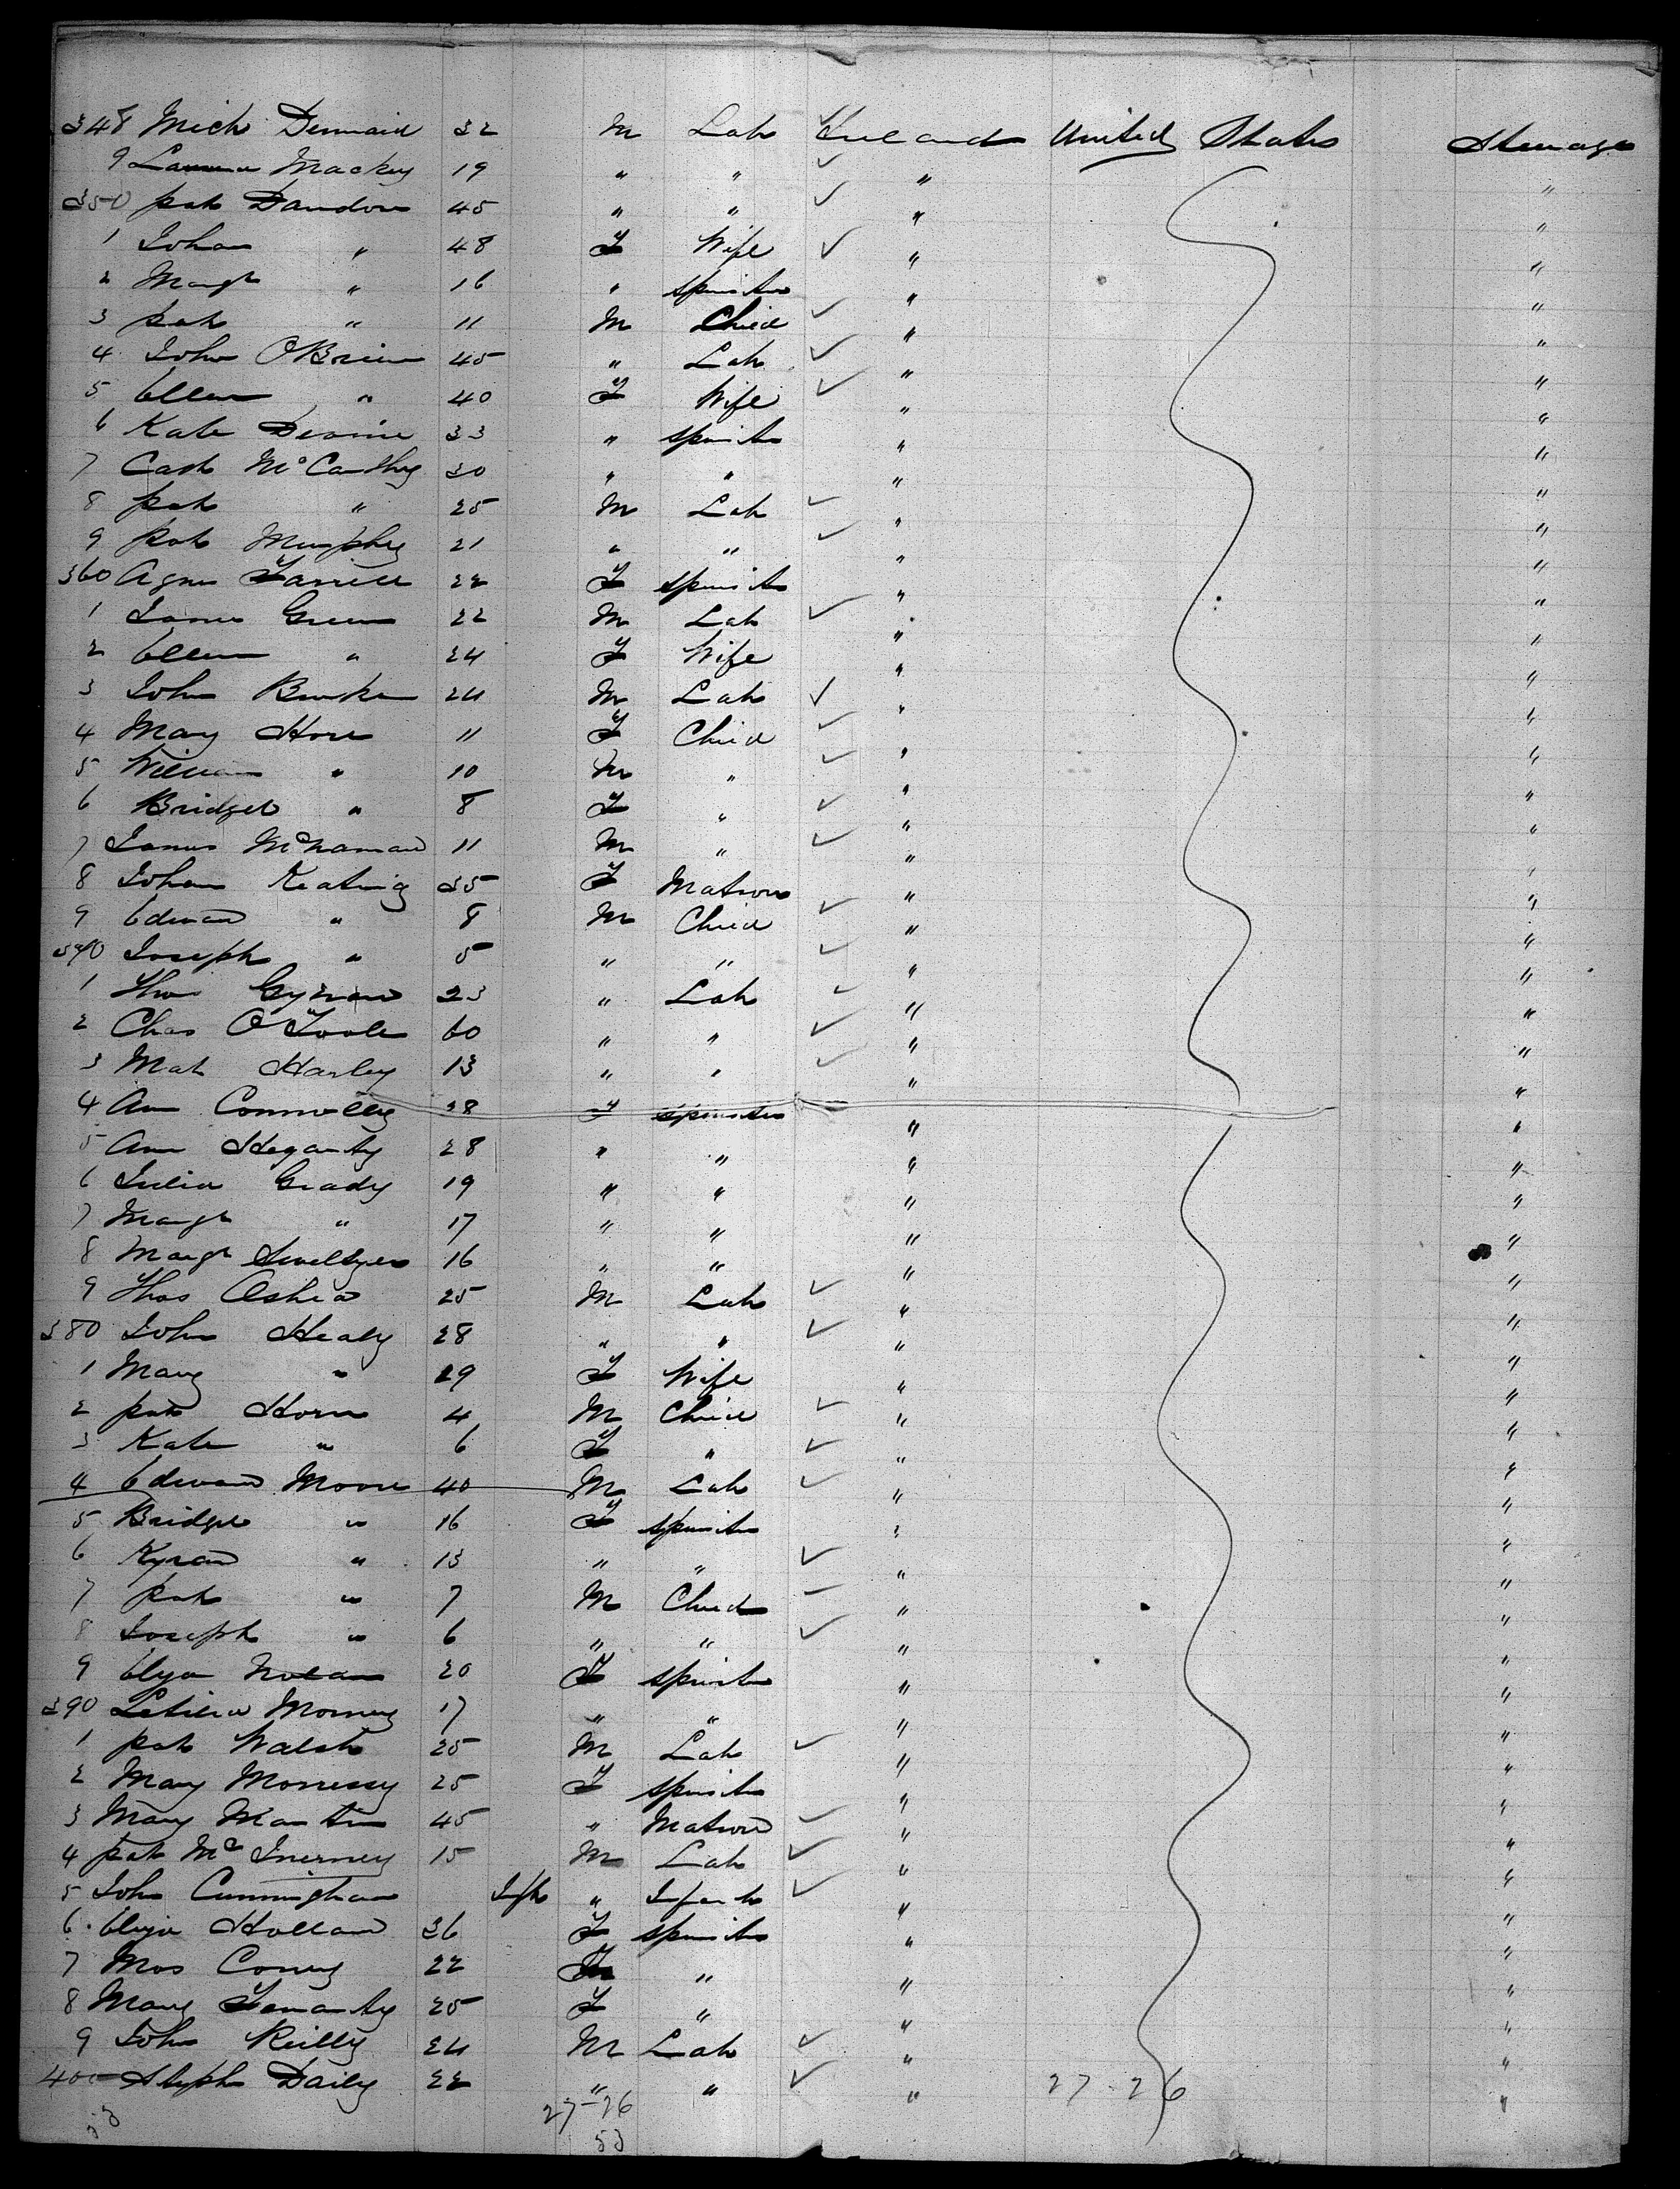 348 Mich Dermaid 32 M Lab Ireland United States Steerage
9 Mackey 19 " " " "
350 Pat Dandon 45 " " " "
1 Johan " 48 F Wife " "
2 Margt " 16 " Spinster " "
3 Pat " 11 M Child " "
4 John O'Brien 45 " Lab " "
5 Ellen " 40 F Wife " "
6 Kate Devine 33 " Spinster " "
7 Cath McCarthy 30 " " " "
8 Pat " 25 M Lab " "
9 Pat Murphy 21 " " " "
360 Agnes Farrell 22 F Spinster " "
1 James Green 22 M Lab " "
2 Ellen " 24 F Wife " "
3 John Burke 24 M Lab " "
4 Mary Hore 11 F Child " "
5 William " 10 M " " "
6 Bridget " 8 F " " "
7 James McNamara 11 M " " "
8 Johan Keating 35 F Matron " "
9 Edward " 8 M Child " "
370 Joseph " 5 " " " "
1 Thos 23 " Lab " "
2 Chas O'Toole 60 " " " "
3 Mat Harley 13 " " " "
4 Ann Connolly 28 F Spinster " "
5 Ann Hegarty 28 " " " "
6 Julia Grady 19 " " " "
7 Margt " 17 " " " "
8 Margt 16 " " " "
9 Thos Ashea 25 M Lab " "
380 John Healy 28 " " " "
1 Mary " 29 F Wife " "
2 Pat Horn 4 M Child " "
3 Kate " 6 F " " "
4 Edward Moore 40 M Lab " "
5 Bridget " 16 F Spinster " "
6 Kyran " 13 " " " "
7 Pat " 7 M Child " "
8 Joseph " 6 " " " "
9 Eliza Nolan 20 F Spinster " "
390 Letitia 17 " " " "
1 Pat Walsh 25 M Lab " "
2 Mary Morressy 25 F Spinster " "
3 Mary Martin 45 " Matron " "
4 Pat McInerney 15 M Lab " "
5 John Cunningham Inft " Infant " "
6 Eliza Holland 36 F Spinster " "
7 Mos Coney 22 " " "
8 Mary 25 F " " "
9 John Reilly 24 M Lab " "
400 Steph Daily 22 " " " 27-26 "
27-26
53
53